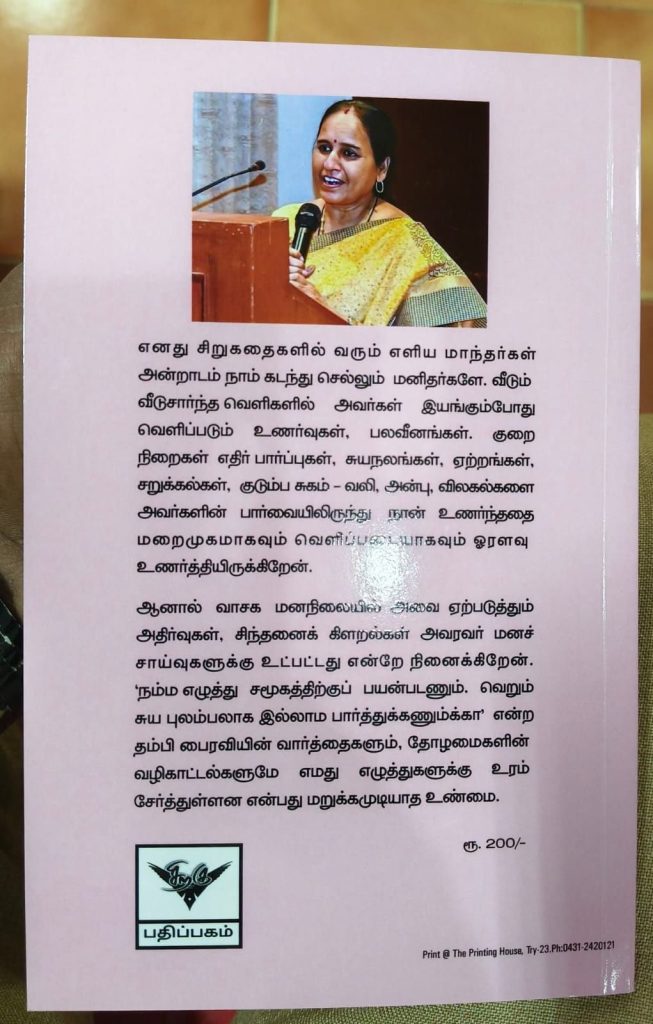 எனது சிறுகதைகளில் வரும் எளிய மாந்தர்கள்
அன்றாடம் நாம் கடந்து செல்லும் மனிதர்களே. வீடும்
வீடுசார்ந்த வெளிகளில் அவர்கள் இயங்கும்போது
வெளிப்படும் உணர்வுகள், பலவீனங்கள். குறை
நிறைகள் எதிர் பார்ப்புகள், சுயநலங்கள், ஏற்றங்கள்,
சறுக்கல்கள், குடும்ப சுகம் – வலி, அன்பு, விலகல்களை
அவர்களின் பார்வையிலிருந்து நான் உணர்ந்ததை
மறைமுகமாகவும் வெளிப்படையாகவும் ஓரளவு
உணர்த்தியிருக்கிறேன்.
ஆனால் வாசக மனநிலையில் அவை ஏற்படுத்தும்
அதிர்வுகள், சிந்தனைக் கிளறல்கள் அவரவர் மனச்
சாய்வுகளுக்கு உட்பட்டது என்றே நினைக்கிறேன்.
‘நம்ம எழுத்து சமூகத்திற்குப் பயன்படணும். வெறும்
சுய புலம்பலாக இல்லாம பார்த்துக்கணும்க்கா’ என்ற
தம்பி பைரவியின் வார்த்தைகளும், தோழமைகளின்
வழிகாட்டல்களுமே எமது எழுத்துகளுக்கு உரம்
சேர்த்துள்ளன என்பது மறுக்கமுடியாத உண்மை.
ரூ. 200/-
சிறகு
பதிப்பகம்
Print @ The Printing House, Try-23.Ph:0431-2420121